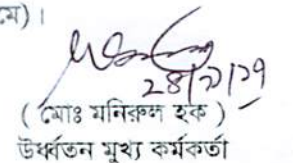 মে)।
২৪/১/১৭
( মোঃ মনিরুল হক )
উর্ধ্বতন মুখ্য কর্মকর্তা